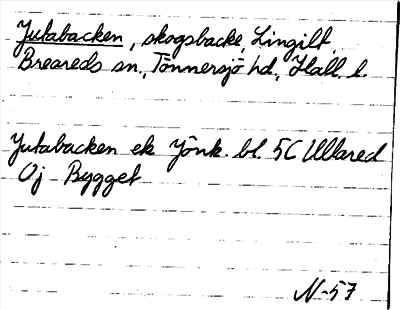 Jutabacken, skogsbacke, Lingilt,
Breareds sn., Tönnersjö hd., Hall. l.
Jutabacken ek Jönk. bl. 5C Ullared
Oj Bygget
N-57